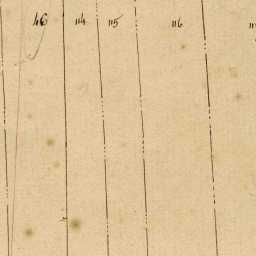 46 114 115 116